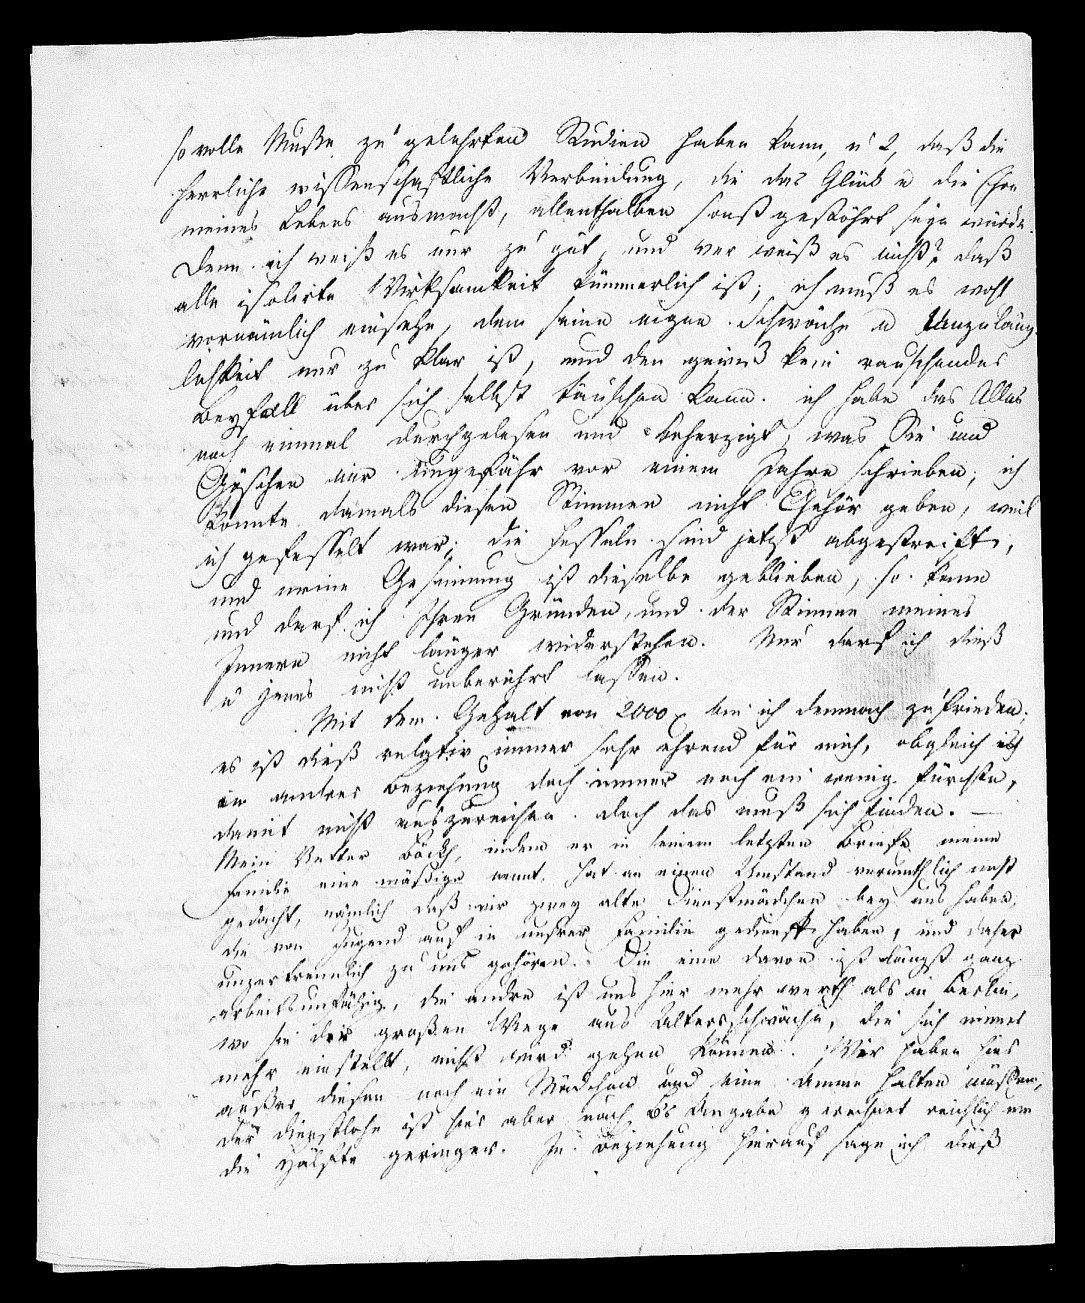 so volle Muße zu gelehrten Studien haben kann, u 2, daß die
herrliche wissenschaftliche Verbindung, die das Glück u die Ehre
meines Lebens ausmacht, allenthalben sonst gestöhrt seyn würde.
Denn ich weiß es nur zu gut, und wer weiß es nicht? daß
alle isolirte Wirksamkeit kümmerlich ist; ich muß es wohl
vornämlich einsehn, dem seine eigne Schwäche u Unzuläng-
lichkeit nur zu klar ist, und den gewiß kein rauschender
Beyfall über sich selbst täuschen kann. ich habe das Alles
noch einmal durchgelesen und beherzigt, was Sie und
Göschen mir ungefähr vor einem Jahre schrieben; ich
konnte damals diesen Stimmen nicht Gehör geben, weil
ich gefesselt war; die Fesseln sind jetzt abgestreift,
und meine Gesinnung ist dieselbe geblieben, so kann
und darf ich Ihren Gründen und der Stimme meines
Innern nicht länger widerstehen. Nur darf ich dieß
u jenes nicht unberührt lassen.
Mit dem Gehalt von 2000 bin ich demnach zufrieden;
es ist dieß relativ immer sehr ehrend für mich, obgleich ich
in andrer Beziehung doch immer noch ein wenig fürchte,
damit nicht auszureichen. doch das muß sich finden. —
Mein Vetter Böckh, indem er in seinem letzten Briefe meine
Familie eine mäßige nennt, hat an einen Umstand vermuthlich nicht
gedacht, nämlich daß wir zwey alte Dienstmädchen bey uns haben,
die von Jugend auf in unsrer Familie gedienst haben, und daher
unzertrennlich zu uns gehören. Die eine davon ist längst ganz
arbeitsunfähig, die andre ist uns hier mehr werth als in Berlin,
wo sie die großen Wege aus Altersschwäche, die sich immer
mehr einstellt, nicht wird gehen können. Wir haben hier
außer diesen noch ein Mädchen und eine Amme halten müssen,
der Dienstlohn ist hier aber nach B's Angabe gerechnet reichlich um
die Hälfte geringer. In Beziehung hierauf sage ich dieß